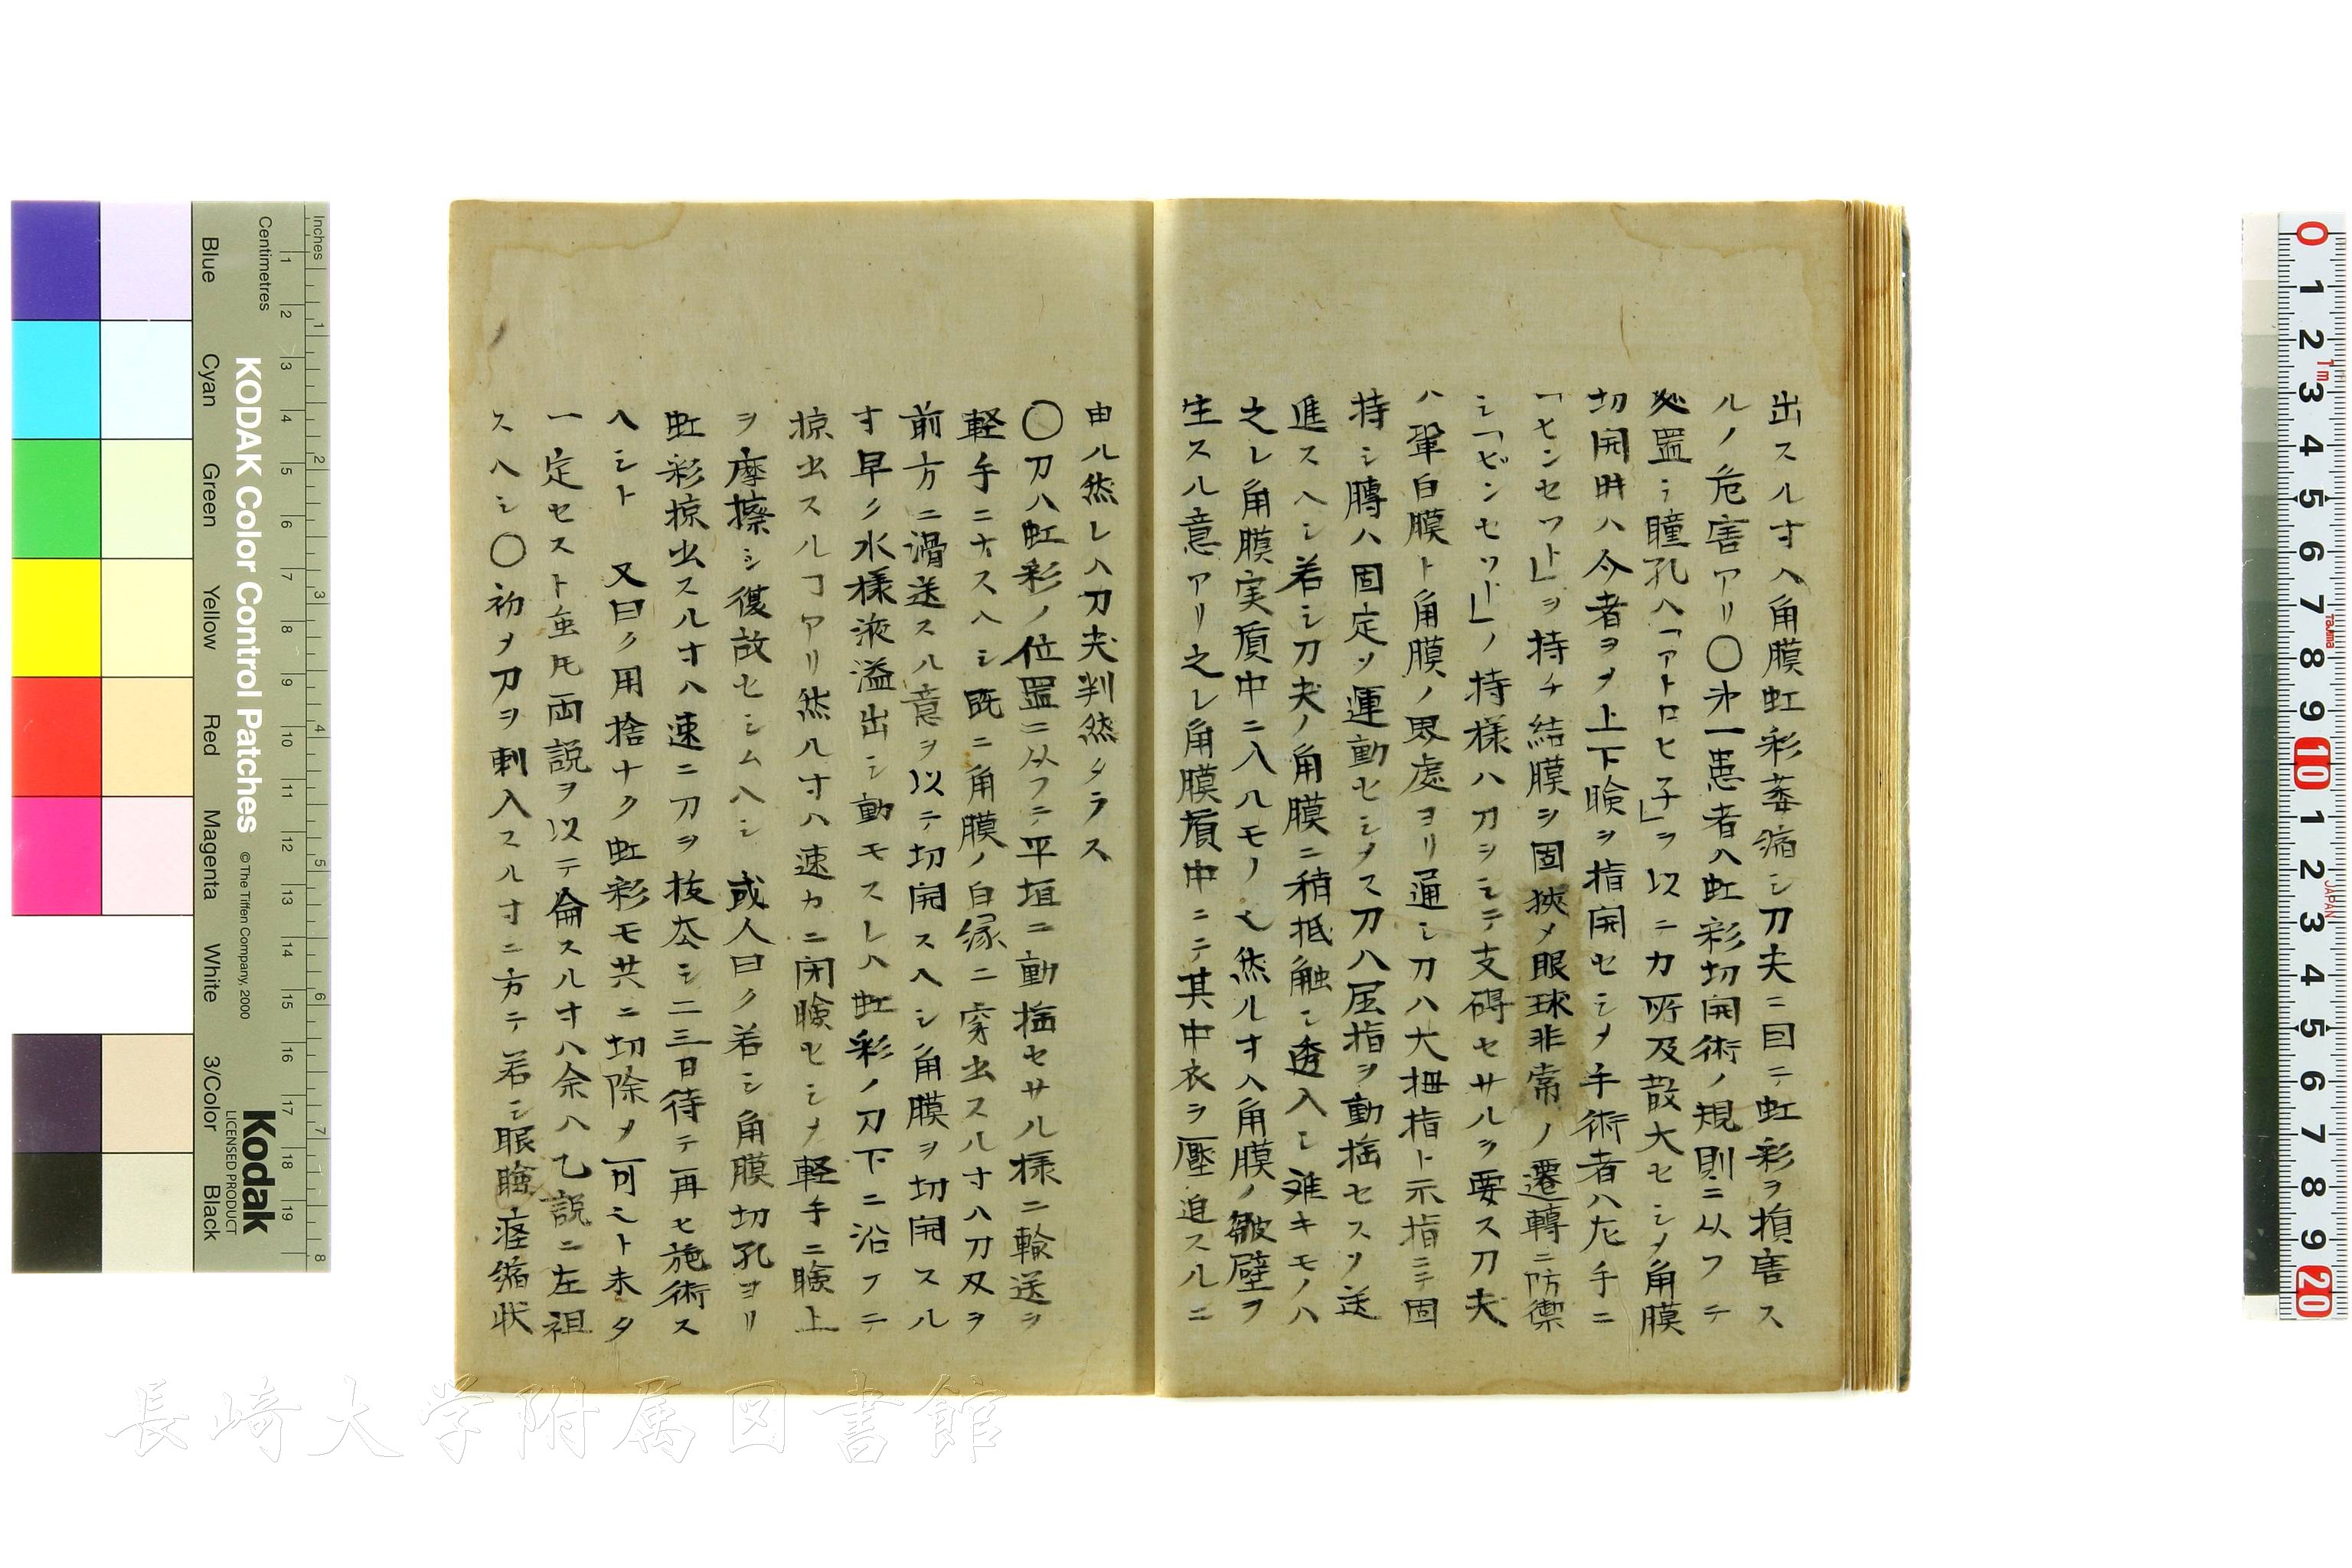 出スルオハ角膜虹彩萎縮シ刀尖ニ囙テ虹彩ヲ損害ス
ルノ危害アリ〇㐧一患者ハ虹彩切開術ノ規則ニ从フテ
処置シ瞳孔ハ「アトロヒ子」ヲ以テ力所及散大セシメ角膜
切開時ハ今者ヲメ上下瞼ヲ指開セシメ手術者ハ左手ニ
「ヒンセット」ヲ持チ結膜ヲ固狹メ眼球非常ノ遷轉ニ防禦
シ「ピンセット」ノ持様ハ刀ヲシテ支碍セサルヲ要ス刀尖
ハ鞏白膜ト角膜ノ界處ヨリ通シ刀ハ大拇指ト示指ニテ固
持シ膊ハ固定ソ運動セシメス刀ハ屈指ヲ動揺セスソ送
進スヘシ若シ刀尖ノ角膜ニ稍抵触シ透入シ难キモノハ
之レ角膜実質中ニ入ルモノ也然ルオハ角膜ノ皺壁ヲ
生スル意アリ之レ角膜質中ニテ其中衣ヲ壓迫スルニ
由ル然レハ刀尖判然タラス
〇刀ハ虹彩ノ位置ニ从フテ平垣ニ動揺セサル様ニ輸送ヲ
軽手ニナスヘシ既ニ角膜ノ白縁ニ穿出スルオハ刀刄ヲ
前方ニ滑送スル意ヲ以テ切開スヘシ角膜ヲ切開スル
オ早ク水様液溢出シ動モスレハ虹彩ノ刀下ニ沿フテ
掠出スルヿアリ然ルオハ速カニ閉瞼セシメ軽手ニ瞼上
ヲ摩擦シ復故セシムヘシ 或人曰ク若シ角膜切孔ヨリ
虹彩掠出スルオハ速ニ刀ヲ抜去シ二三日待テ再ヒ施術ス
ヘシト 又曰ク用捨ナク虹彩モ共ニ切除メ可シト未タ
一定セスト虽𪜈両説ヲ以テ侖スルオハ余ハ乙説ニ左袒
スヘシ〇初メ刀ヲ刺入スルオニ方テ若シ眼瞼痙縮状
KODAK Color Control Patches
© The Tiffen Company, 2000
Kodak
LICENSED PRODUCT
Inches
Centimetres
Blue
Cyan
Green
Yellow
Red
Magenta
White
3/Color
Black
長崎大学附属図書館